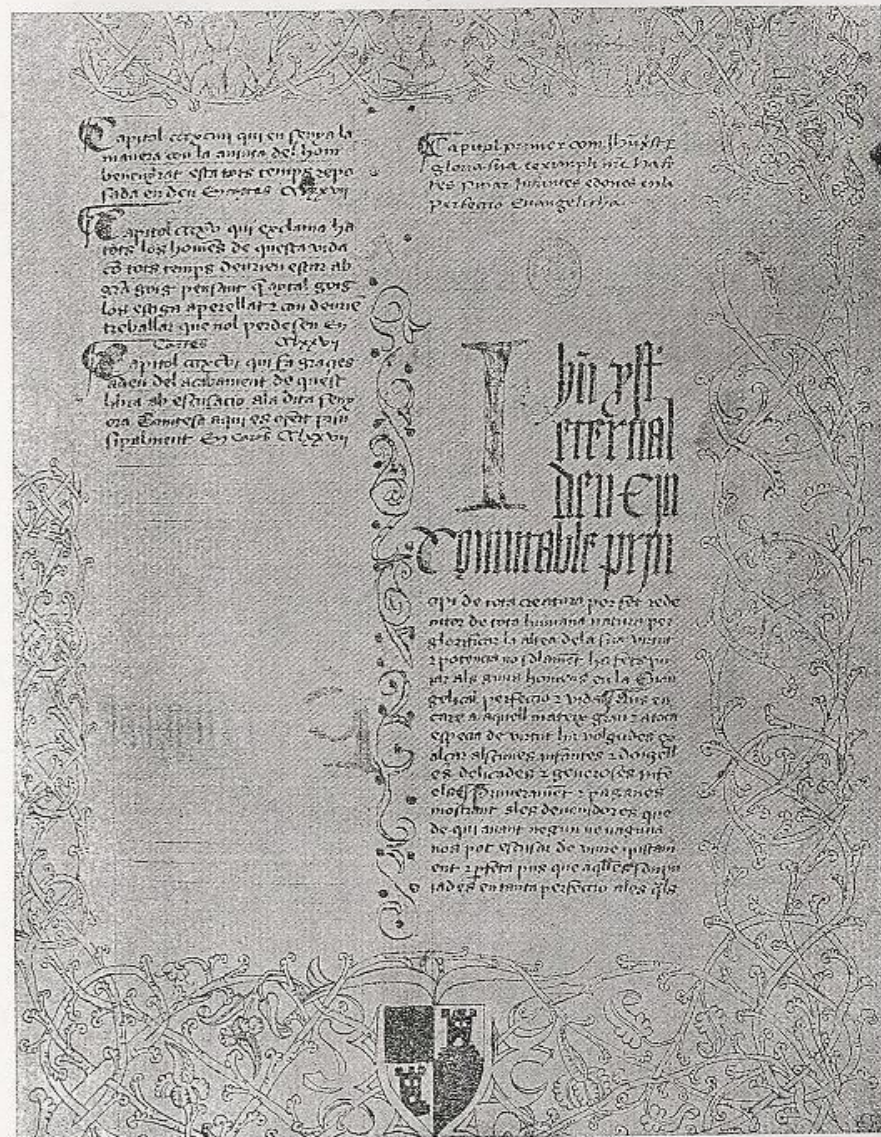 Capitol ccclxciiii qui ensenya la
manera con la anima del hom
benauyrat esta tots temps repo
sada en deu En cartes
Capitol cccxcv qui exclama ha
tots los homens de questa vida
cō tots temps deurien estar ab
grā goig pensant q̄ aytal goig
los estiga aperellat ⁊ con deurie
treballar que nol perdesen En
Cartes
Capitol cccxcvi qui fa gracies
adeu del acabament de quest
libre ab escusacio ala dita seny
ora Comtesa aqui es ofert prin
sipalment En cartes
Capitol primer com
gloria sua
tes puiar Infantes edones en la
perfectio Euangelicha
Ihū xst
eternal
deu E in
Comutable prin
cipi de tota creatura per ser rede
mtor de tota humana natura per
glorificar la altea dela sua virtut
⁊ potencia no solament ha fets pu
iar als grans homens en la Euan
gelical perfectio ⁊ vida Ans en
care a aquell mateix grau ⁊ a tota
especia de virtut ha volgudes ex
alçar algunes infantes ⁊ donzell
es delicades ⁊ generoses infe
els Primerament ⁊ paganes
mostrant als deuenidores que
de qui auant negun ne naguna
nos pot escusar de viure iustam
ent ⁊ pfeta pus que aqlles son pu
iades en tanta perfectio ales qls